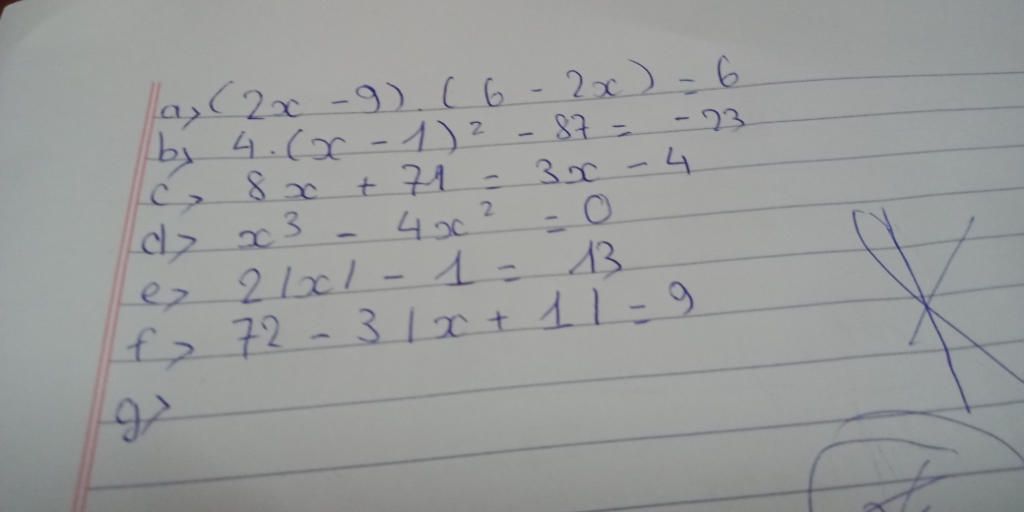 a> (2x - 9) . (6 - 2x) = 6
b> 4 . (x - 1)² - 87 = - 23
c> 8x + 71 = 3x - 4
d> x³ - 4x² = 0
e> 2|x| - 1 = 13
f> 72 - 3|x + 1| = 9
g>